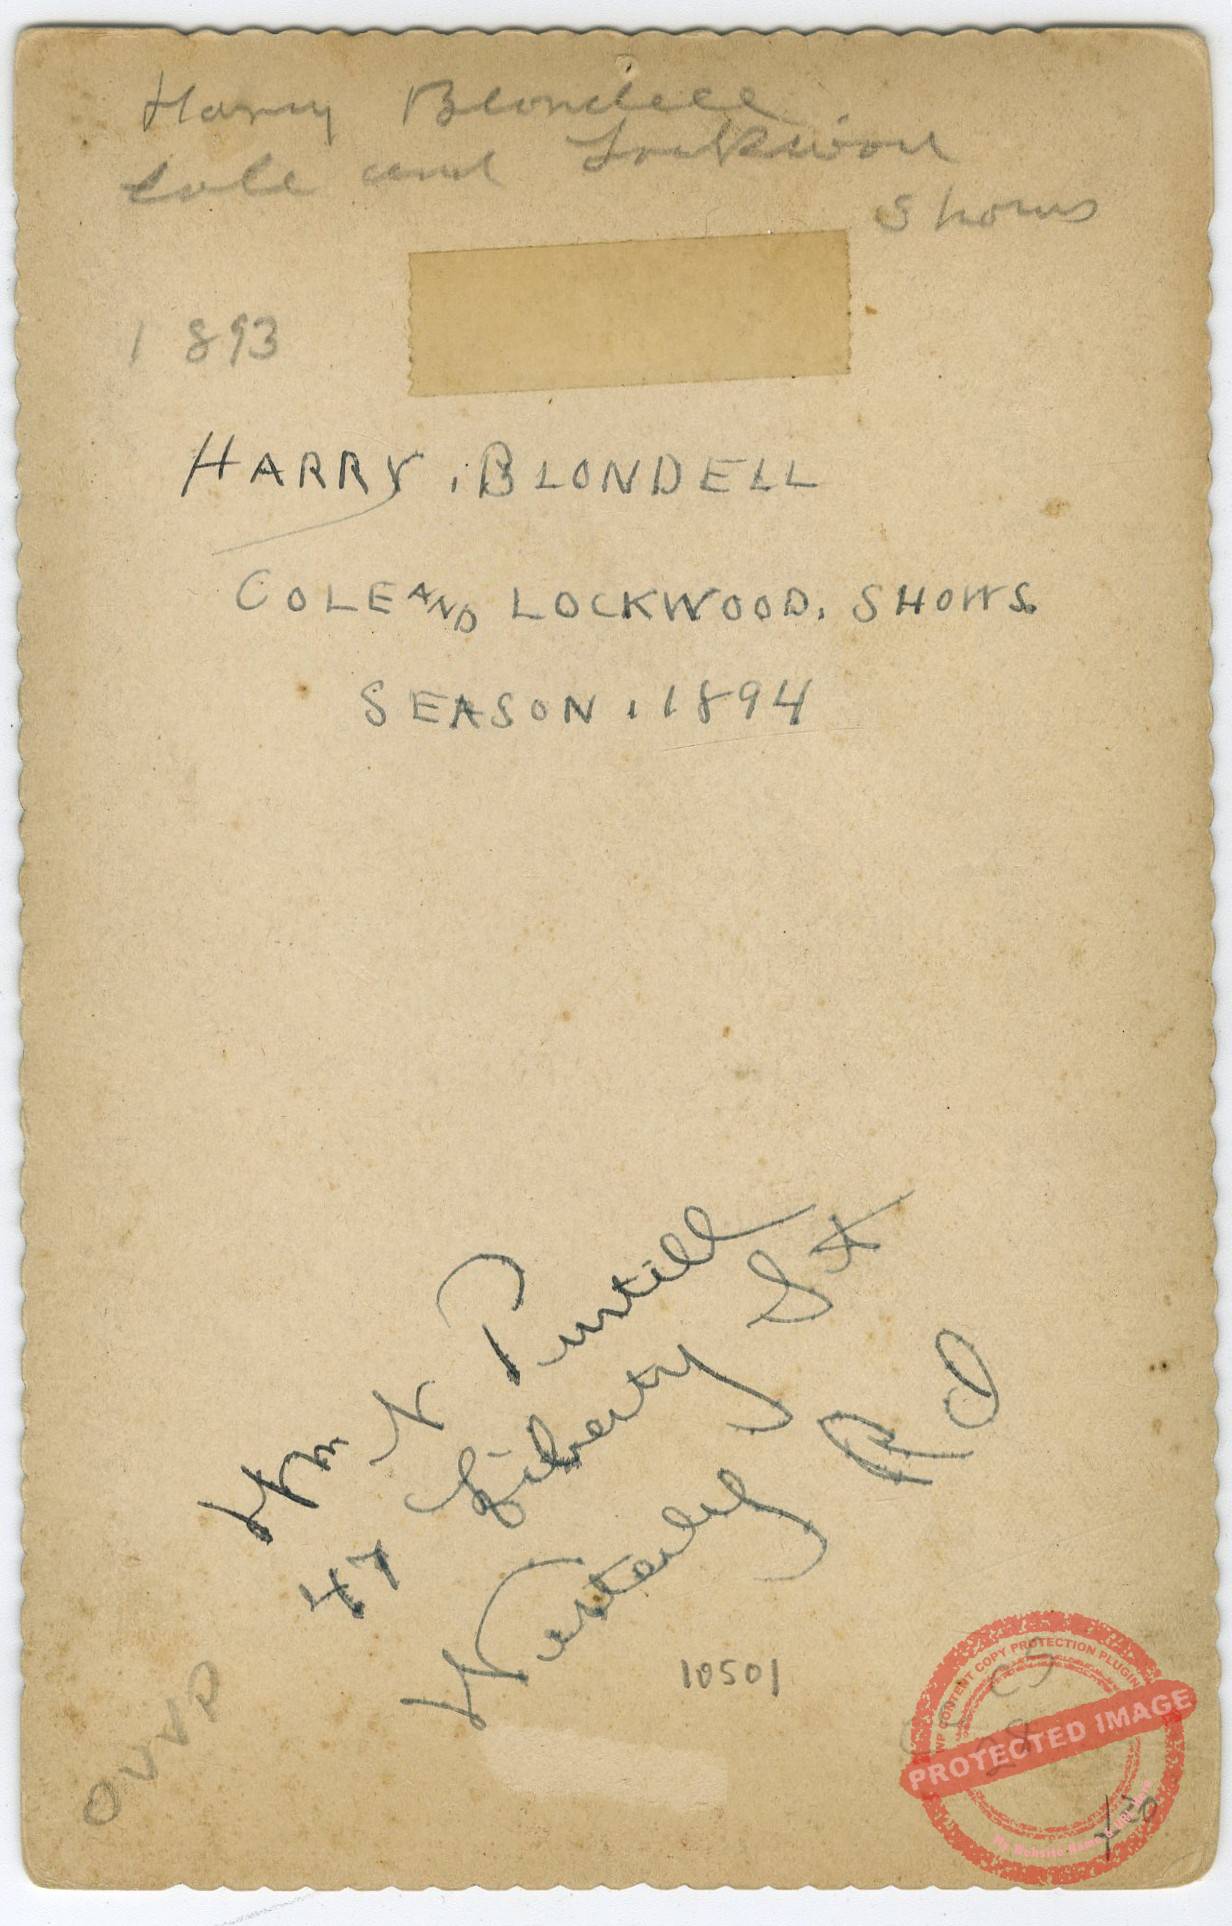 Harry Blondell
Cole and Lockwood
Shows
1893
HARRY. BLONDELL
COLE AND LOCKWOOD. SHOWS.
SEASON. 1894
Wm N Purtill
47 Liberty St
Westerly RI
10501
OVVP
PROTECTED IMAGE